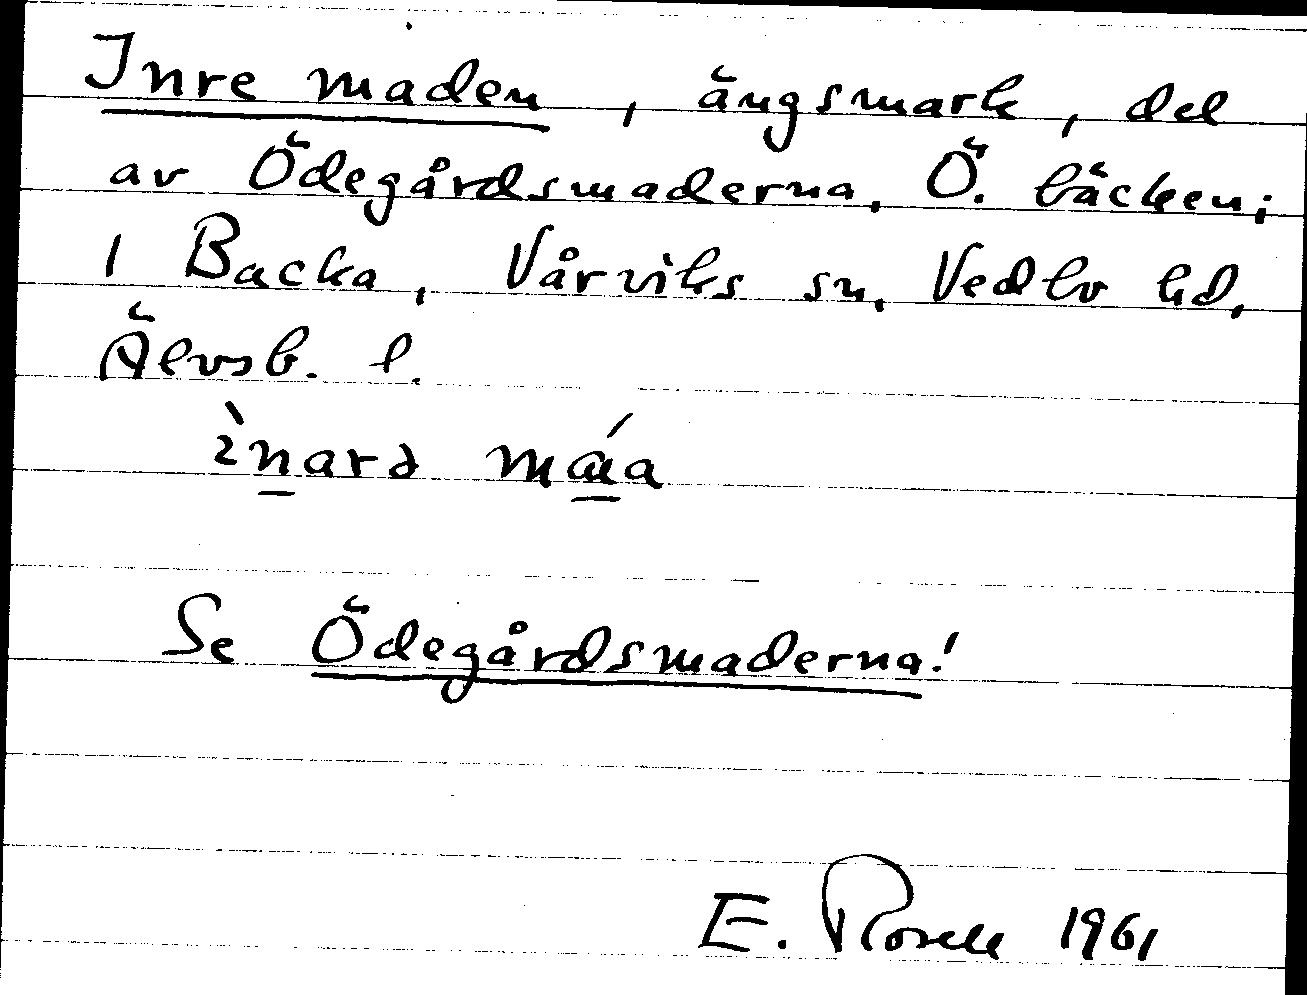 Inre maden, ängsmark, del
av Ödegårdsmaderna, Ö. bäcken;
1 Backa, Vårviks sn, Vedbo hd,
Älvsb. l.
Se Ödegårdsmaderna!
E. Rosell 1961